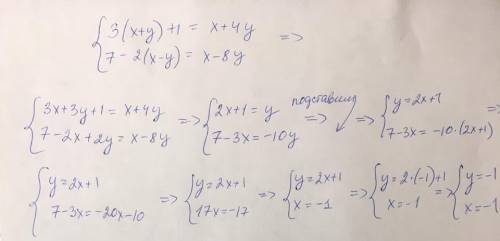 { 3(x+y)+1 = x+4y
{ 7-2(x-y) = x-8y =>
{ 3x+3y+1 = x+4y
{ 7-2x+2y = x-8y => { 2x+1 = y
{ 7-3x = -10y => подставим { y = 2x+1
{ 7-3x = -10·(2x+1) =>
{ y = 2x+1
{ 7-3x = -20x-10 => { y = 2x+1
{ 17x = -17 => { y = 2x+1
{ x = -1 => { y = 2·(-1)+1
{ x = -1 => { y = -1
{ x = -1